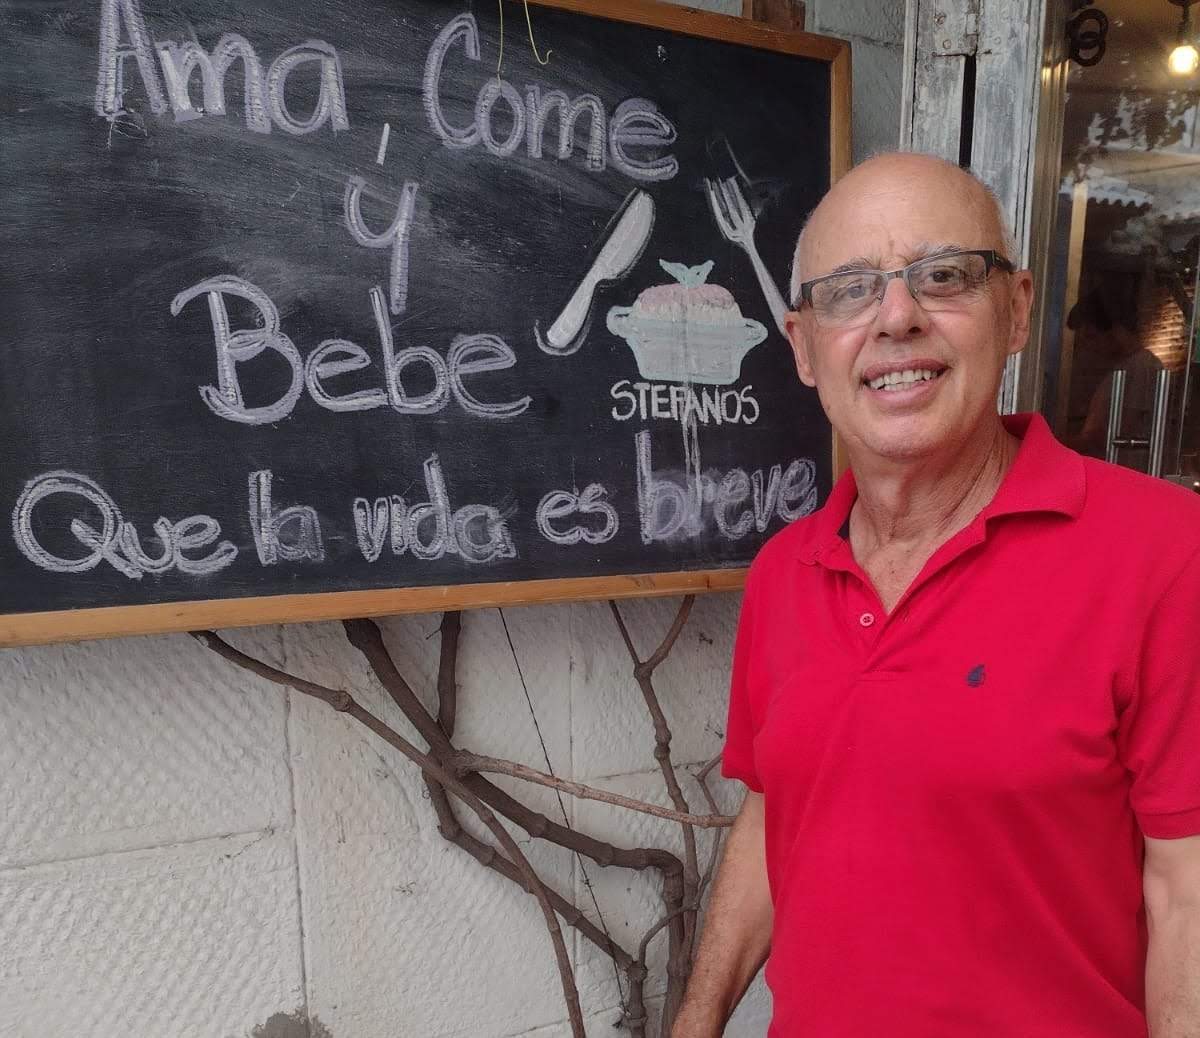 Ama, Come
y
Bebe
STEFANOS
Que la vida es breve